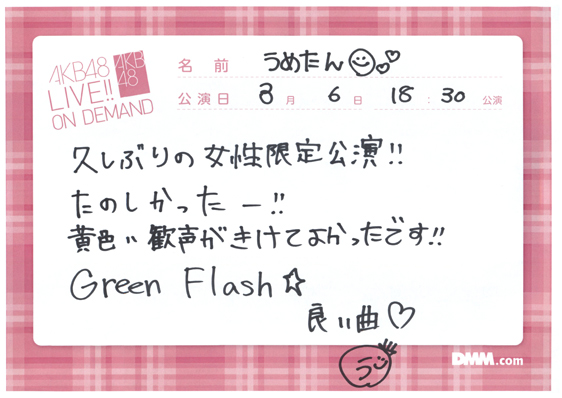 AKB48
LIVE!!
ON DEMAND
AKB
48
名 前 うめたん
公演日 3 月 6 日 18 : 30 公演
久しぶりの女性限定公演!!
たのしかったー!!
黄色い歓声がきけてよかったです!!
Green Flash☆
良い曲♡
う
DMM.com